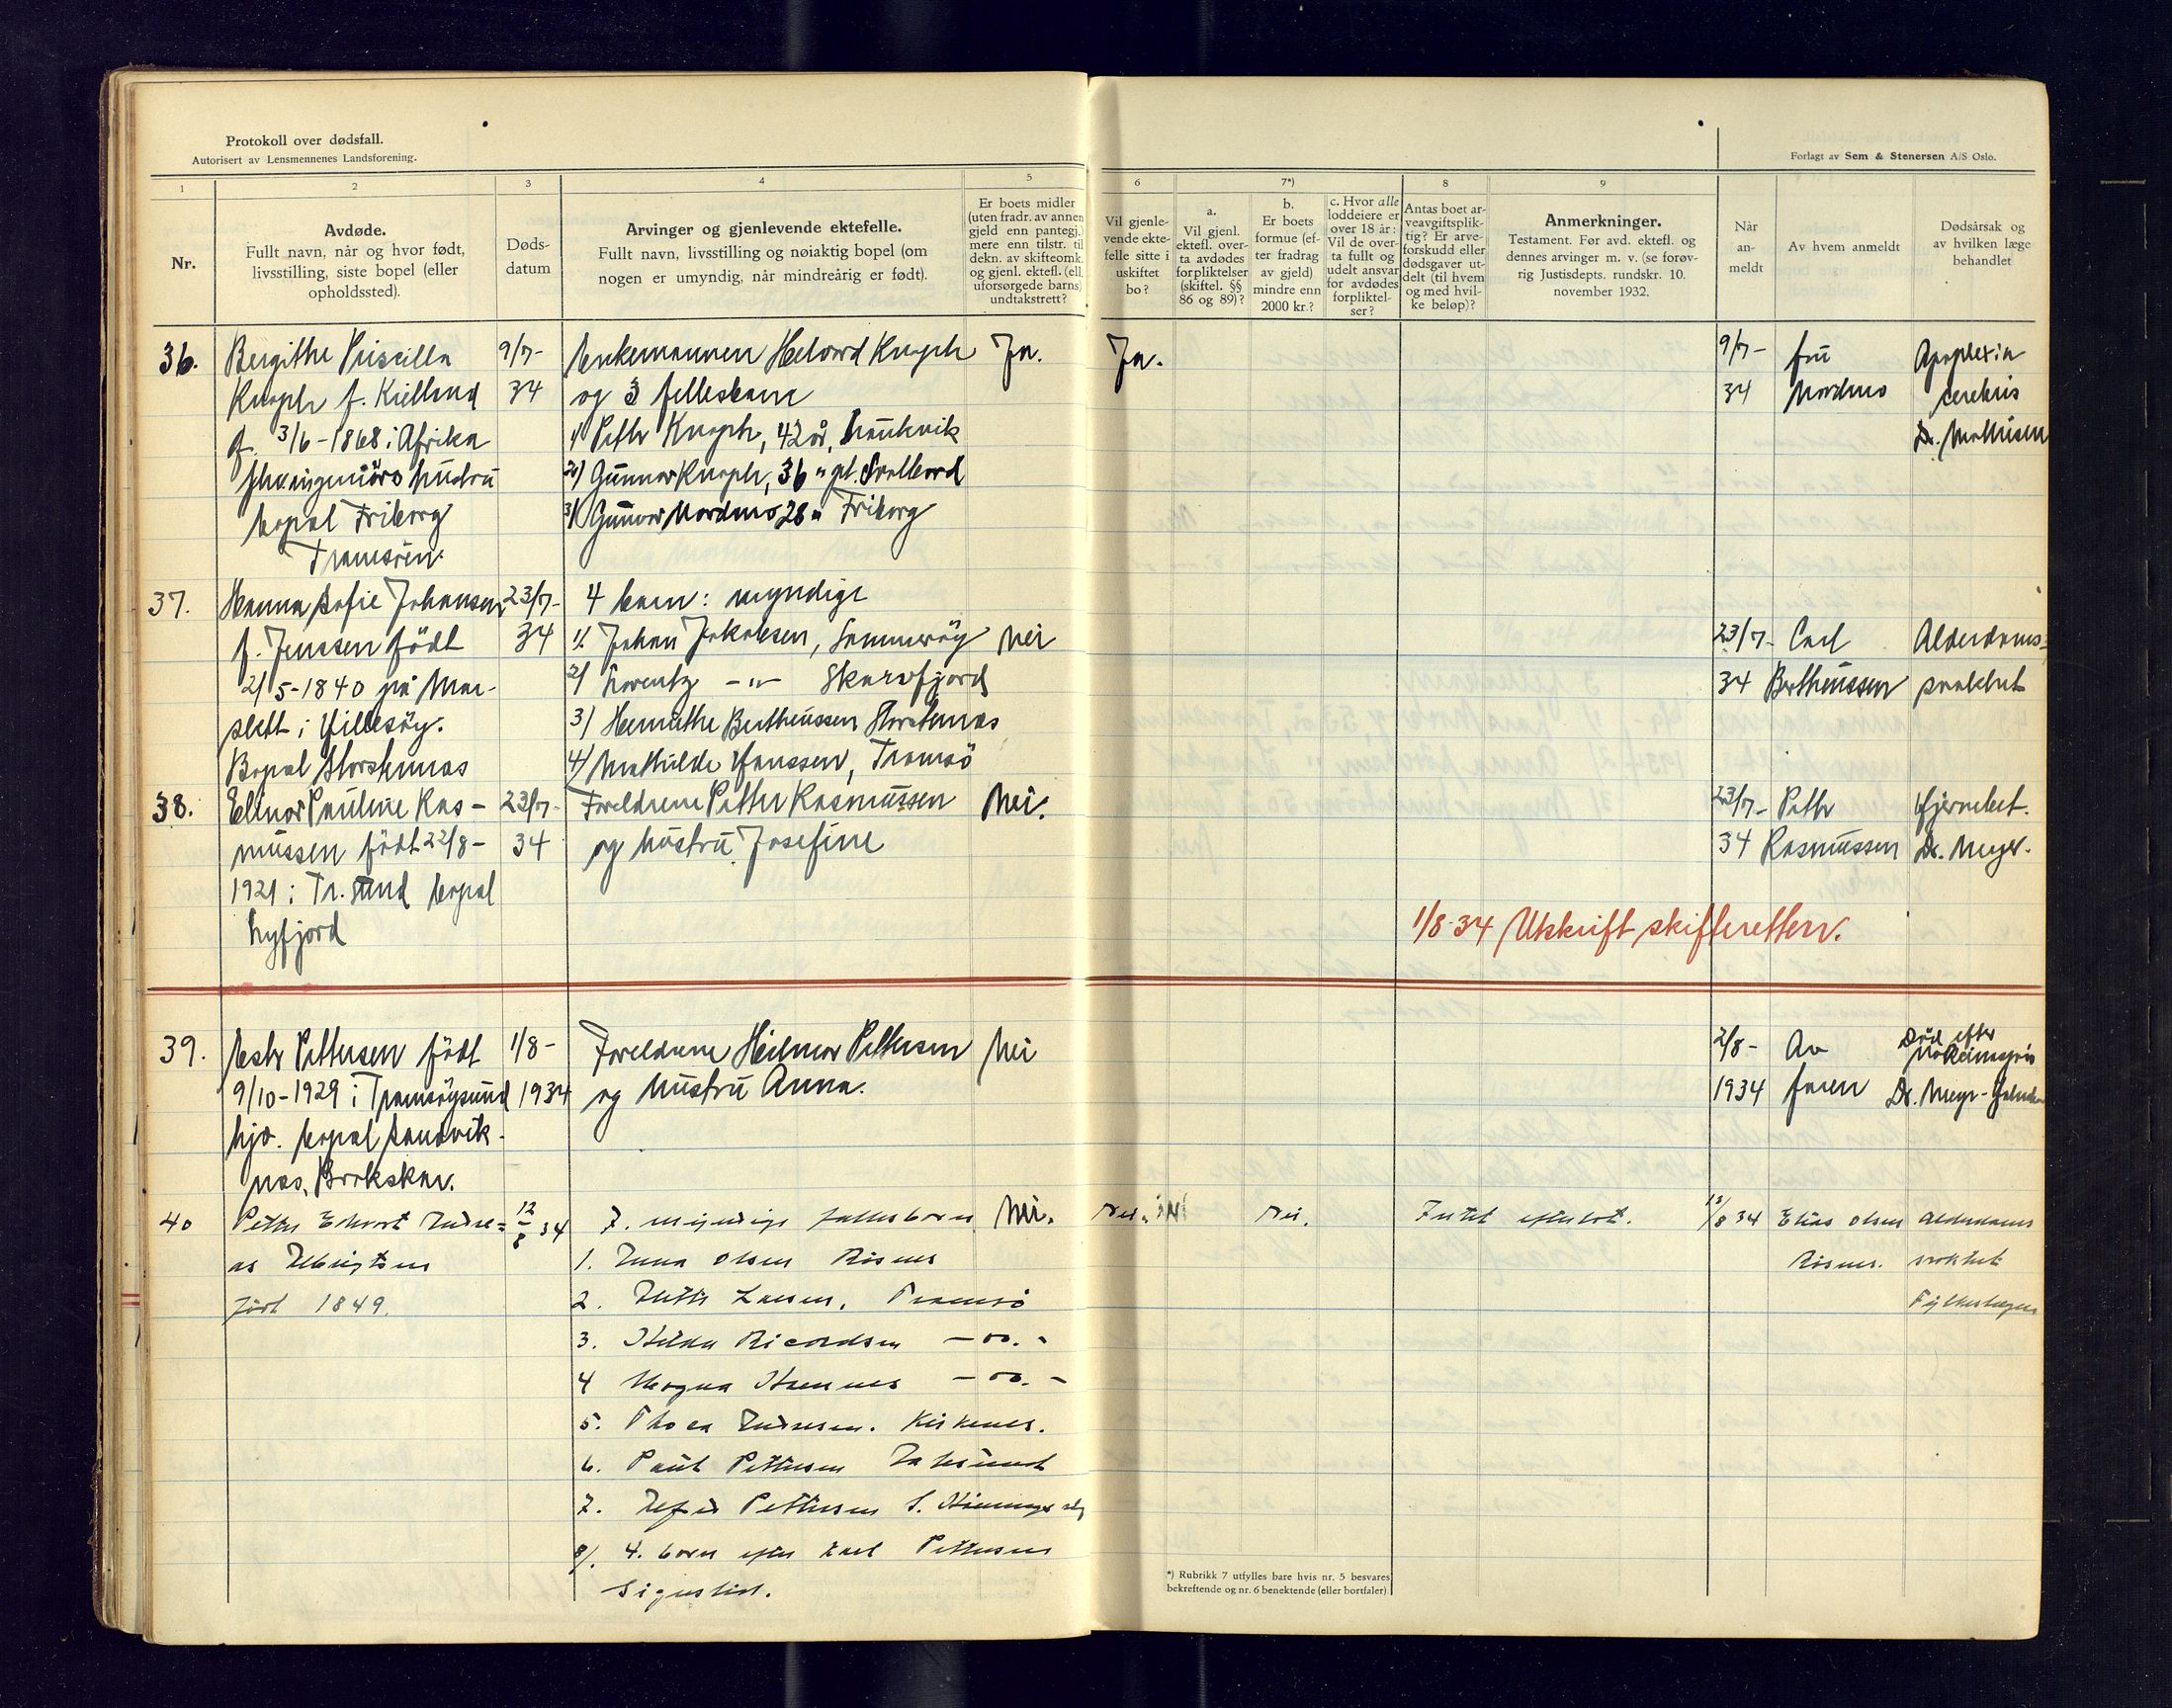 Protokoll over dødsfall.
Autorisert av Lensmennenes Landsforening.
Forlagt av Sem & Stenersen A/S Oslo.
1 2 3 4 5 6 7*) 8 9
Nr.
Avdøde.
Fullt navn, når og hvor født,
livsstilling, siste bopel (eller
opholdssted).
Døds-
datum
Arvinger og gjenlevende ektefelle.
Fullt navn, livsstilling og nøiaktig bopel (om
nogen er umyndig, når mindreårig er født).
Er boets midler
(uten fradr. av annen
gjeld enn pantegj.)
mere enn tilstr. til
dekn. av skifteomk.
og gjenl. ektefl. (ell.
uforsørgede barns)
undtakstrett?
Vil gjenle-
vende ekte-
felle sitte i
uskiftet
bo?
a.
Vil gjenl.
ektefl. over-
ta avdødes
forpliktelser
(skiftel. §§
86 og 89)?
b.
Er boets
formue (ef-
ter fradrag
av gjeld)
mindre enn
2000 kr.?
c. Hvor alle
loddeiere er
over 18 år:
Vil de over-
ta fullt og
udelt ansvar
for avdødes
forpliktel-
ser?
Antas boet ar-
veavgiftsplik-
tig? Er arve-
forskudd eller
dødsgaver ut-
delt (til hvem
og med hvil-
ke beløp)?
Anmerkninger.
Testament. Før avd. ektefl. og
dennes arvinger m. v. (se forøv-
rig Justisdepts. rundskr. 10.
november 1932.
Når
an-
meldt
Av hvem anmeldt
Dødsårsak og
av hvilken læge
behandlet
36.
Bergithe Priscilla
Knoph f. Kielland
f. 3/6-1868 i Afrika
hustru
bopel Friborg
Tromsöen.
9/7-
34
Enkemannen Helvard Knoph
og 3 fellesbarn
1/ Petter Knoph, 42 år,
2/) Gunnar Knoph, 36 " pt. Svalbard
3/) Gunvor Nordmo 28 " Friborg
Ja.
Ja.
9/7-
34
fru
Nordmo
Apoplexia
cerebris
Dr. Mathisen
37.
Hanna Sofie Johansen
f. Jenssen født
2/5-1840 på Mar-
slett i Hillesöy.
Bopel Storsteinnes
23/7-
34
4 barn: myndige
1/. Johan Jakobsen, Sommeröy
2/ Lorentz -"- Skarsfjord
3/ Bertheussen Storsteinnes
4/ Mathilde Hanssen, Tromsö
Nei
23/7-
34
Carl
Bertheussen
Alderdoms-
svakhet
38.
Elinor Pauline Ras-
mussen født 22/8-
1921 i Tr.sund bopel
Lyfjord
23/7-
34
Foreldrene Petter Rasmussen
og hustru Josefine
Nei.
23/7-
34
Petter
Rasmussen
Hjernebet.
Dr. Meyer.
1/8-34 Utskrift skifteretten.
39.
Pettersen født
9/10-1929 i Tromsöysund
bopel Sandvik-
nes,
1/8-
1934
Foreldrene Hilmar Pettersen
og hustru Anna.
Nei
2/8-
1934
Av
faren
Död efter
Dr. Meyer-
40
Petter Edvart Andre=
as
født 1849.
12/8 34
7. myndige fellesbarn
1. Anna Olsen Risnes
2. Larsen, Tromsö
3. Hilda Ricardsen -"-
4 Magna -"-
5. Thora Andresen. Kirkenes.
6. Paul Pettersen
7. Pettersen
8/. 4. barn efter Karl Pettersen
Nei.
Nei.
Nei.
Intet efterlatt.
13/8 34
Elias Olsen
Risnes.
Alderdoms
svakhet
Fylkeslægen
*) Rubrikk 7 utfylles bare hvis nr. 5 besvares
bekreftende og nr. 6 benektende (eller bortfaler)